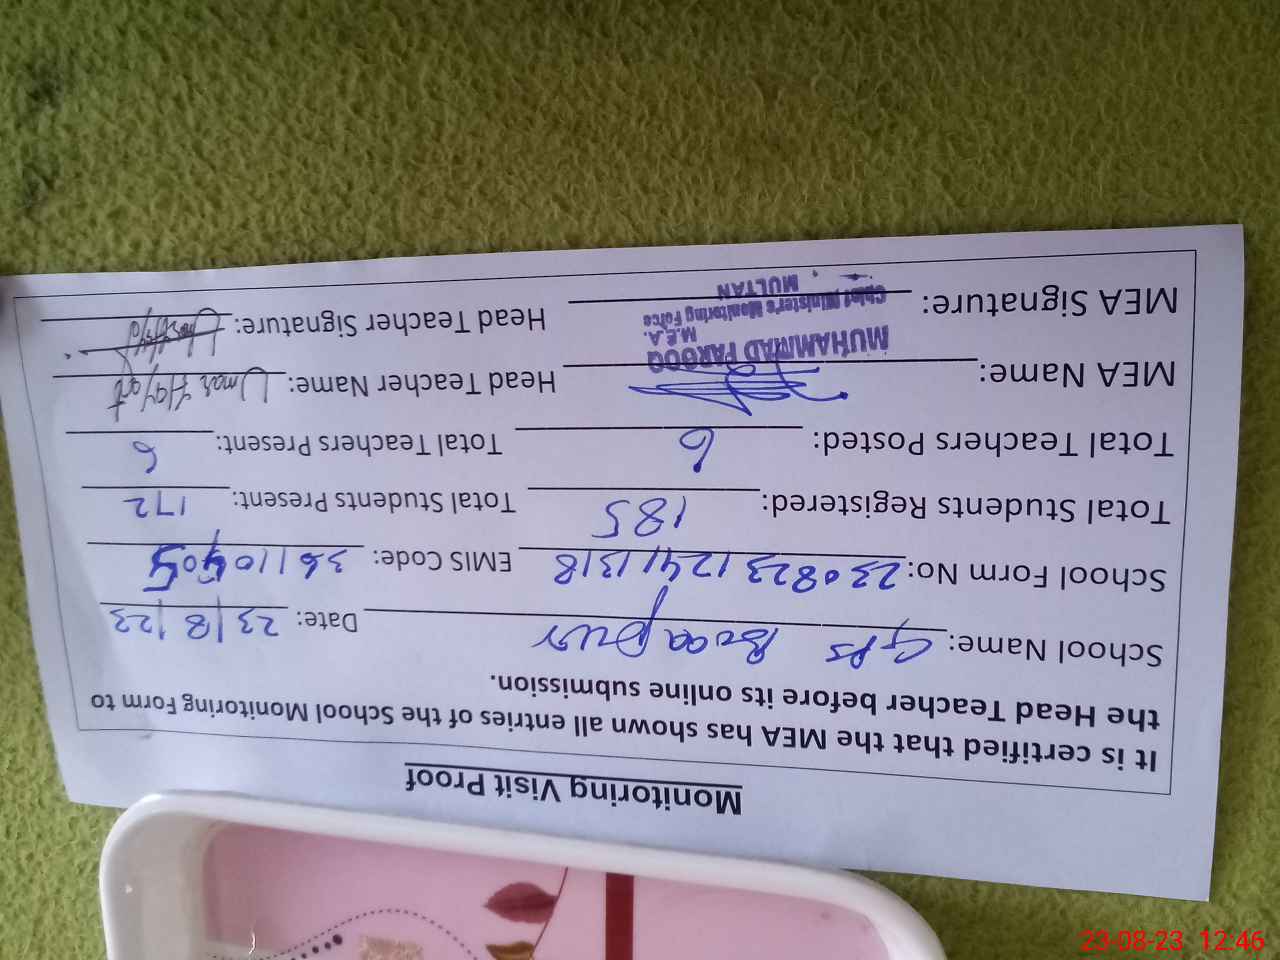 Monitoring Visit Proof
It is certified that the MEA has shown all entries of the School Monitoring Form to
the Head Teacher before its online submission.
School Name: GPS Date: 23/8/23
School Form No: 23082312411318 EMIS Code:
Total Students Registered: 185 Total Students Present: 172
Total Teachers Posted: 6 Total Teachers Present: 6
MEA Name: Head Teacher Name: Umar Hayat
MUHAMMAD FAROOQ
M.E.A.
Chief Minister's Monitoring Force
MULTAN
MEA Signature: Head Teacher Signature:
23-08-23 12:46